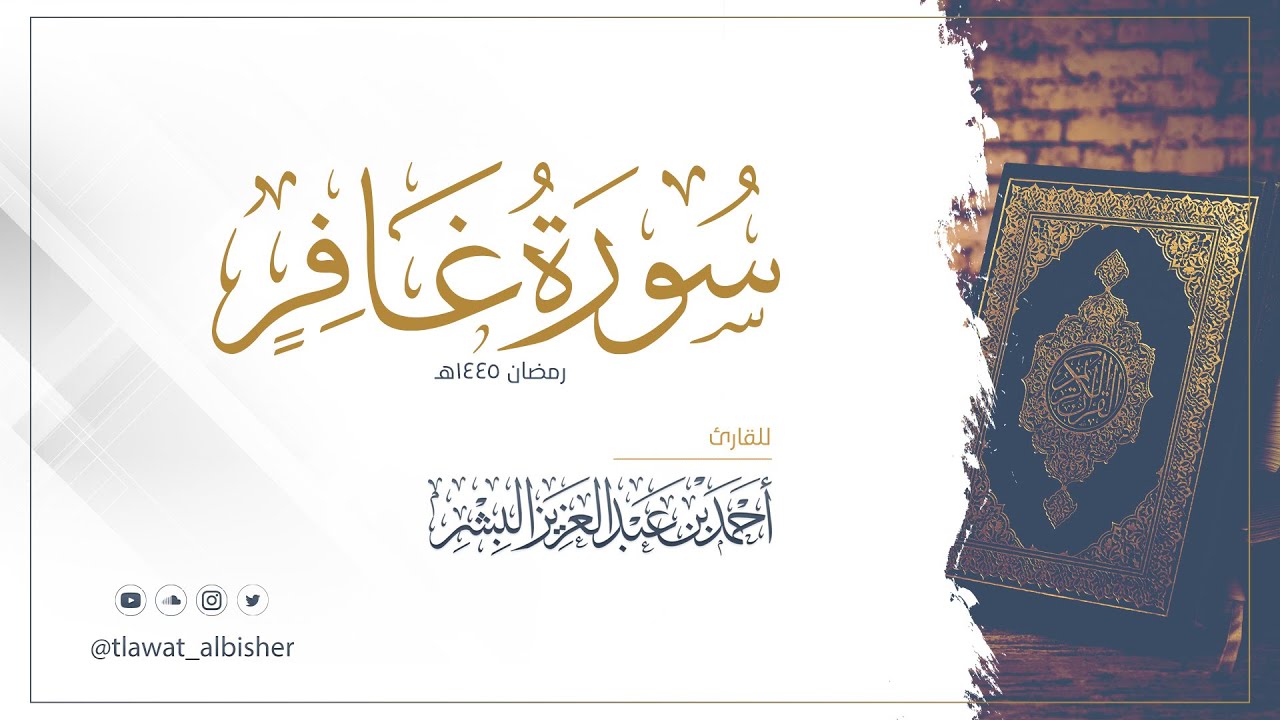 سُورَةُ غَافِرٍ
رمضان ١٤٤٥هـ
للقارئ
أَحْمَدَ بْنِ عَبْدِ الْعَزِيزِ الْبِشْرِ
@tlawat_albisher
القرآن الكريم